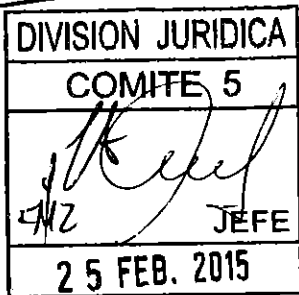 DIVISION JURIDICA
COMITE 5
JEFE
25 FEB. 2015